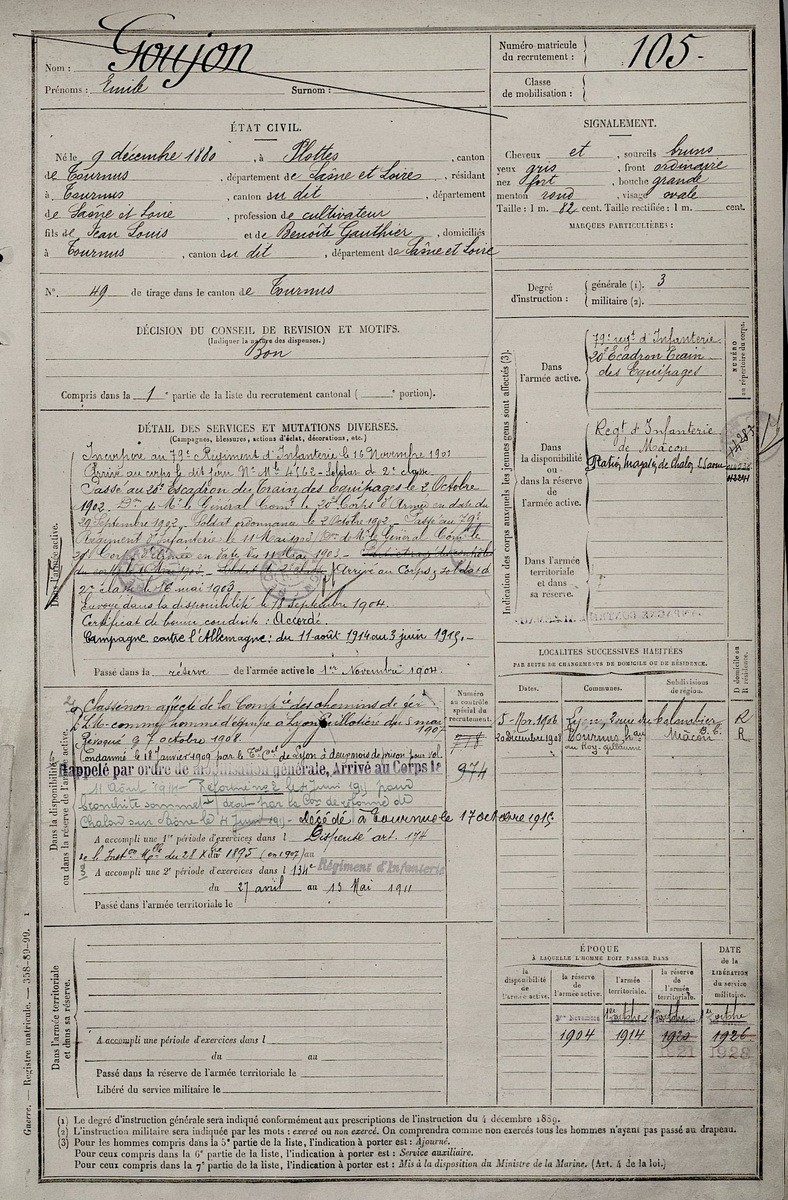 Nom : Goujon
Prénoms : Emile Surnom :
Numéro matricule du recrutement : 105.
Classe de mobilisation :
ÉTAT CIVIL.
Né le 9 décembre 1880, à Plottes, canton
de Tournus, département de Saône et Loire, résidant
à Tournus, canton du dit, département
de Saône et Loire, profession de cultivateur
fils de Jean Louis et de Benoîte Gauthier, domiciliés
à Tournus, canton du dit, département de Saône et Loire
N° 49 de tirage dans le canton de Tournus
SIGNALEMENT.
Cheveux et, sourcils bruns
yeux gris, front ordinaire
nez fort, bouche grande
menton rond, visage ovale
Taille : 1 m. 62 cent. Taille rectifiée : 1 m. cent.
MARQUES PARTICULIÈRES :
Degré d'instruction : générale (1). 3
militaire (2).
DÉCISION DU CONSEIL DE REVISION ET MOTIFS.
(Indiquer la nature des dispenses.)
Bon
Compris dans la 1e partie de la liste du recrutement cantonal ( e portion).
DÉTAIL DES SERVICES ET MUTATIONS DIVERSES.
(Campagnes, blessures, actions d'éclat, décorations, etc.)
Dans l'armée active.
Incorporé au 79e Régiment d'Infanterie le 16 Novembre 1901
Arrivé au corps le dit jour Nº Mle 4562 - Soldat de 2e classe
Passé au 20e Escadron du Train des Equipages le 2 Octobre
1902 - Don de Mr le Général Comt le 20e Corps d'Armée en date du
29 Septembre 1902 - Soldat ordonnance le 2 Octobre 1902 - Passé au 79e
Régiment d'Infanterie le 11 Mai 1903 Don de Mr le Général Comt le
Corps d'Armée en date du 11 Mai 1903 -
Arrivé au Corps, soldat de
2e classe le mai 1903
Envoyé dans la disponibilité le 18 Septembre 1904.
Certificat de bonne conduite : Accordé.
Campagne contre l'Allemagne : du 11 août 1914 au 3 juin 1915.-
Passé dans la réserve de l'armée active le 1er Novembre 1904.
Indication des corps auxquels les jeunes gens sont affectés (3).
NUMÉRO au répertoire du corps.
Dans l'armée active.
79e regt d'Infanterie
20e Escadron Train
des Equipages
Dans la disponibilité ou dans la réserve de l'armée active.
Regt d'Infanterie
de Mâcon
Dans l'armée territoriale et dans sa réserve.
Dans la disponibilité ou dans la réserve de l'armée active.
Numéro au contrôle spécial du recrutement.
974
Classé non affecté de la Compie des chemins de fer
P.L.M. comme homme d'équipe à Lyon Guillotière du 5 mai 1907
Révoqué 7 octobre 1908.
Condamné le 18 Janvier 1909 par le Tal Cel de Lyon à deux mois de prison pour vol.
Rappelé par ordre de mobilisation générale, Arrivé au Corps le
11 Août 1914 - Réformé nº 2 le 4 Juin 1915 pour
bronchite sommet droit par la Con de réforme de
Chalon sur Saône le 4 Juin 1915 - Décédé à Tournus le 17 octobre 1915
A accompli une 1re période d'exercices dans l Dispensé art. 174
de l'Inston Mlle du 28 Xbre 1895 (en 1907) au
A accompli une 2e période d'exercices dans l 134e Régiment d'Infanterie
du 27 avril au 13 Mai 1911
Passé dans l'armée territoriale le
LOCALITÉS SUCCESSIVES HABITÉES
PAR SUITE DE CHANGEMENTS DE DOMICILE OU DE RÉSIDENCE.
Dates. Communes. Subdivisions de région. D domicile ou R résidence.
5 - Nov. 1906 Lyon, 2 rue R
20 décembre 1908 Tournus Mâcon R
Dans l'armée territoriale et dans sa réserve.
A accompli une période d'exercices dans l
du au
Passé dans la réserve de l'armée territoriale le
Libéré du service militaire le
ÉPOQUE
À LAQUELLE L'HOMME DOIT PASSER DANS
la disponibilité de l'armée active. la réserve de l'armée active. l'armée territoriale. la réserve de l'armée territoriale. DATE de la LIBÉRATION du service militaire.
1er Novembre 1er octobre 1er octobre 1er octobre
1904 1914 1920 1926
1921 1928
Guerre. — Registre matricule. — 358-89-99. 1
(1) Le degré d'instruction générale sera indiqué conformément aux prescriptions de l'instruction du 4 décembre 1889.
(2) L'instruction militaire sera indiquée par les mots : exercé ou non exercé. On comprendra comme non exercés tous les hommes n'ayant pas passé au drapeau.
(3) Pour les hommes compris dans la 5e partie de la liste, l'indication à porter est : Ajourné.
Pour ceux compris dans la 6e partie de la liste, l'indication à porter est : Service auxiliaire.
Pour ceux compris dans la 7e partie de la liste, l'indication à porter est : Mis à la disposition du Ministre de la Marine. (Art. 4 de la loi.)